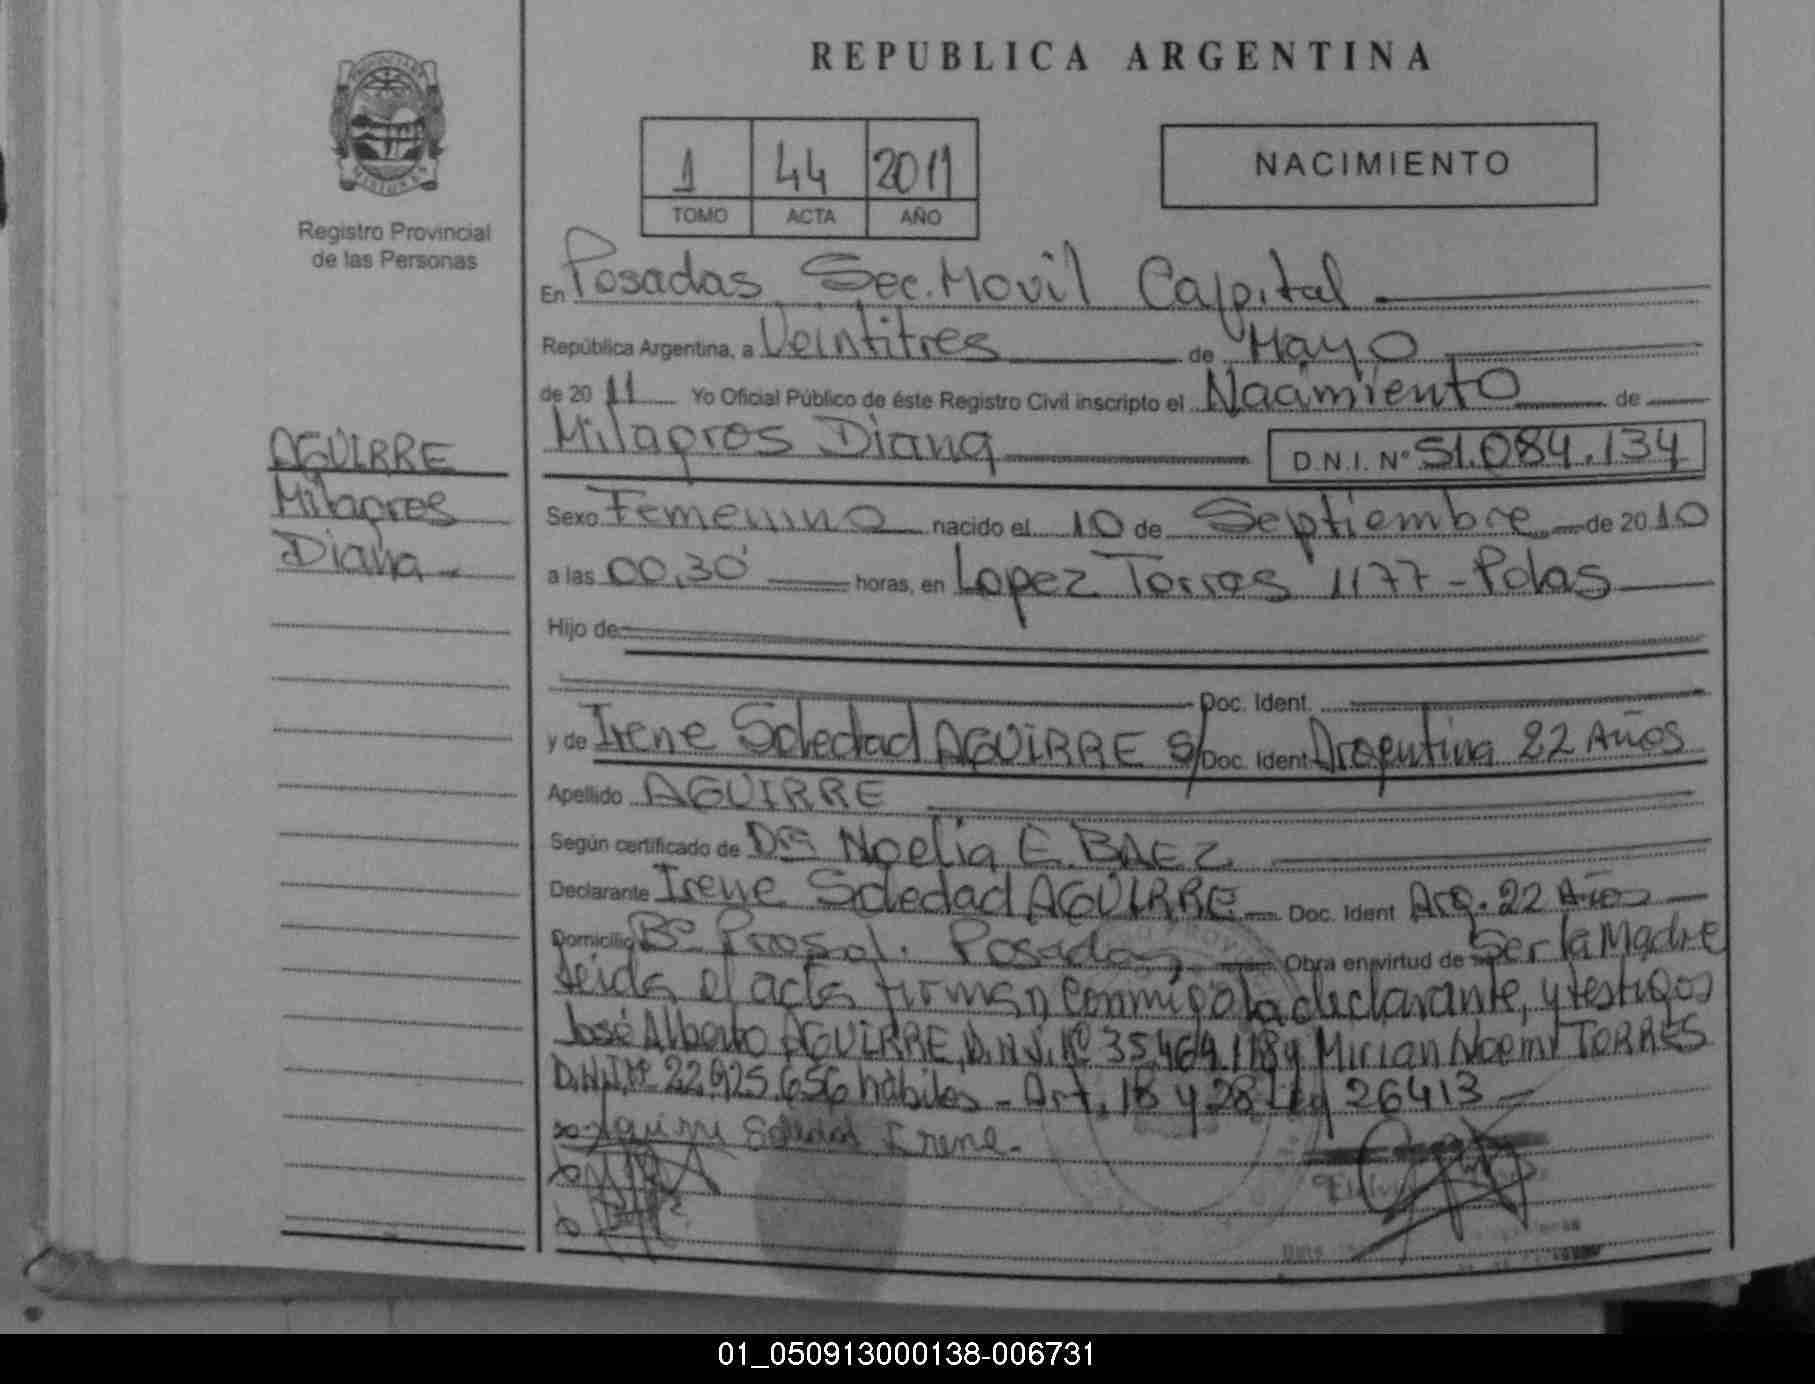 REPUBLICA ARGENTINA
1 44 2011
TOMO ACTA AÑO
NACIMIENTO
PROVINCIA DE
MISIONES
Registro Provincial
de las Personas
AGUIRRE
Milagros
Diana
En Posadas Sec. Movil Capital
República Argentina, a Veintitres de Mayo
de 2011 Yo Oficial Público de éste Registro Civil inscripto el Nacimiento de
Milagros Diana D.N.I. Nº 51.084.134
Sexo Femenino nacido el 10 de Septiembre de 2010
a las 00,30' horas, en Lopez Torres 1177 - Pdas
Hijo de
Doc. Ident.
y de Irene Soledad AGUIRRE S/ Doc. Ident Argentina 22 Años
Apellido AGUIRRE
Según certificado de Dra Noelia E. BAEZ
Declarante Irene Soledad AGUIRRE Doc. Ident Arg. 22 Años
Domicilio Bº Prosol. Posadas Obra en virtud de Ser la Madre
Leida el acta firman conmigo la declarante, y testigos
José Alberto AGUIRRE, D.N.I. Nº 35.464.118 y Mirian Noemi TORRES
D.N.I. Nº 22.925.656 hábiles - Art. 18 y 28 Ley 26413
Aguirre Soledad Irene.
01_050913000138-006731